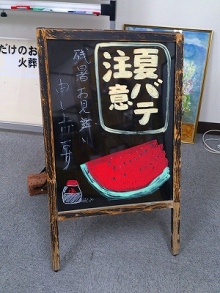 だけのお
火葬
夏バテ
注意
残暑お見舞い
申し上げます